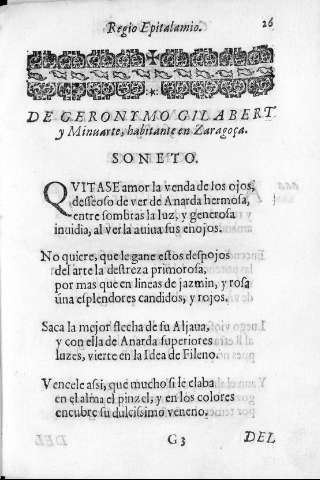 Regio Epitalamio. 26
DE GERONYMO GILABERT
y Minuarte, habitante en Zaragoça.
SONETO.
QVITASE amor la venda de los ojos,
desseoso de ver de Anarda hermosa,
entre sombras la luz, y generosa
inuidia, al verla auiua sus enojos.
No quiere, que le gane estos despojos
del arte la destreza primorosa,
por mas que en lineas de jazmin, y rosa
vna esplendores candidos, y rojos.
Saca la mejor flecha de su Aljaua,
y con ella de Anarda superiores
luzes, vierte en la Idea de Fileno.
Vencele assi, que mucho si le claba
en el alma el pinzel, y en los colores
encubre su dulcissimo veneno.
G3 DEL